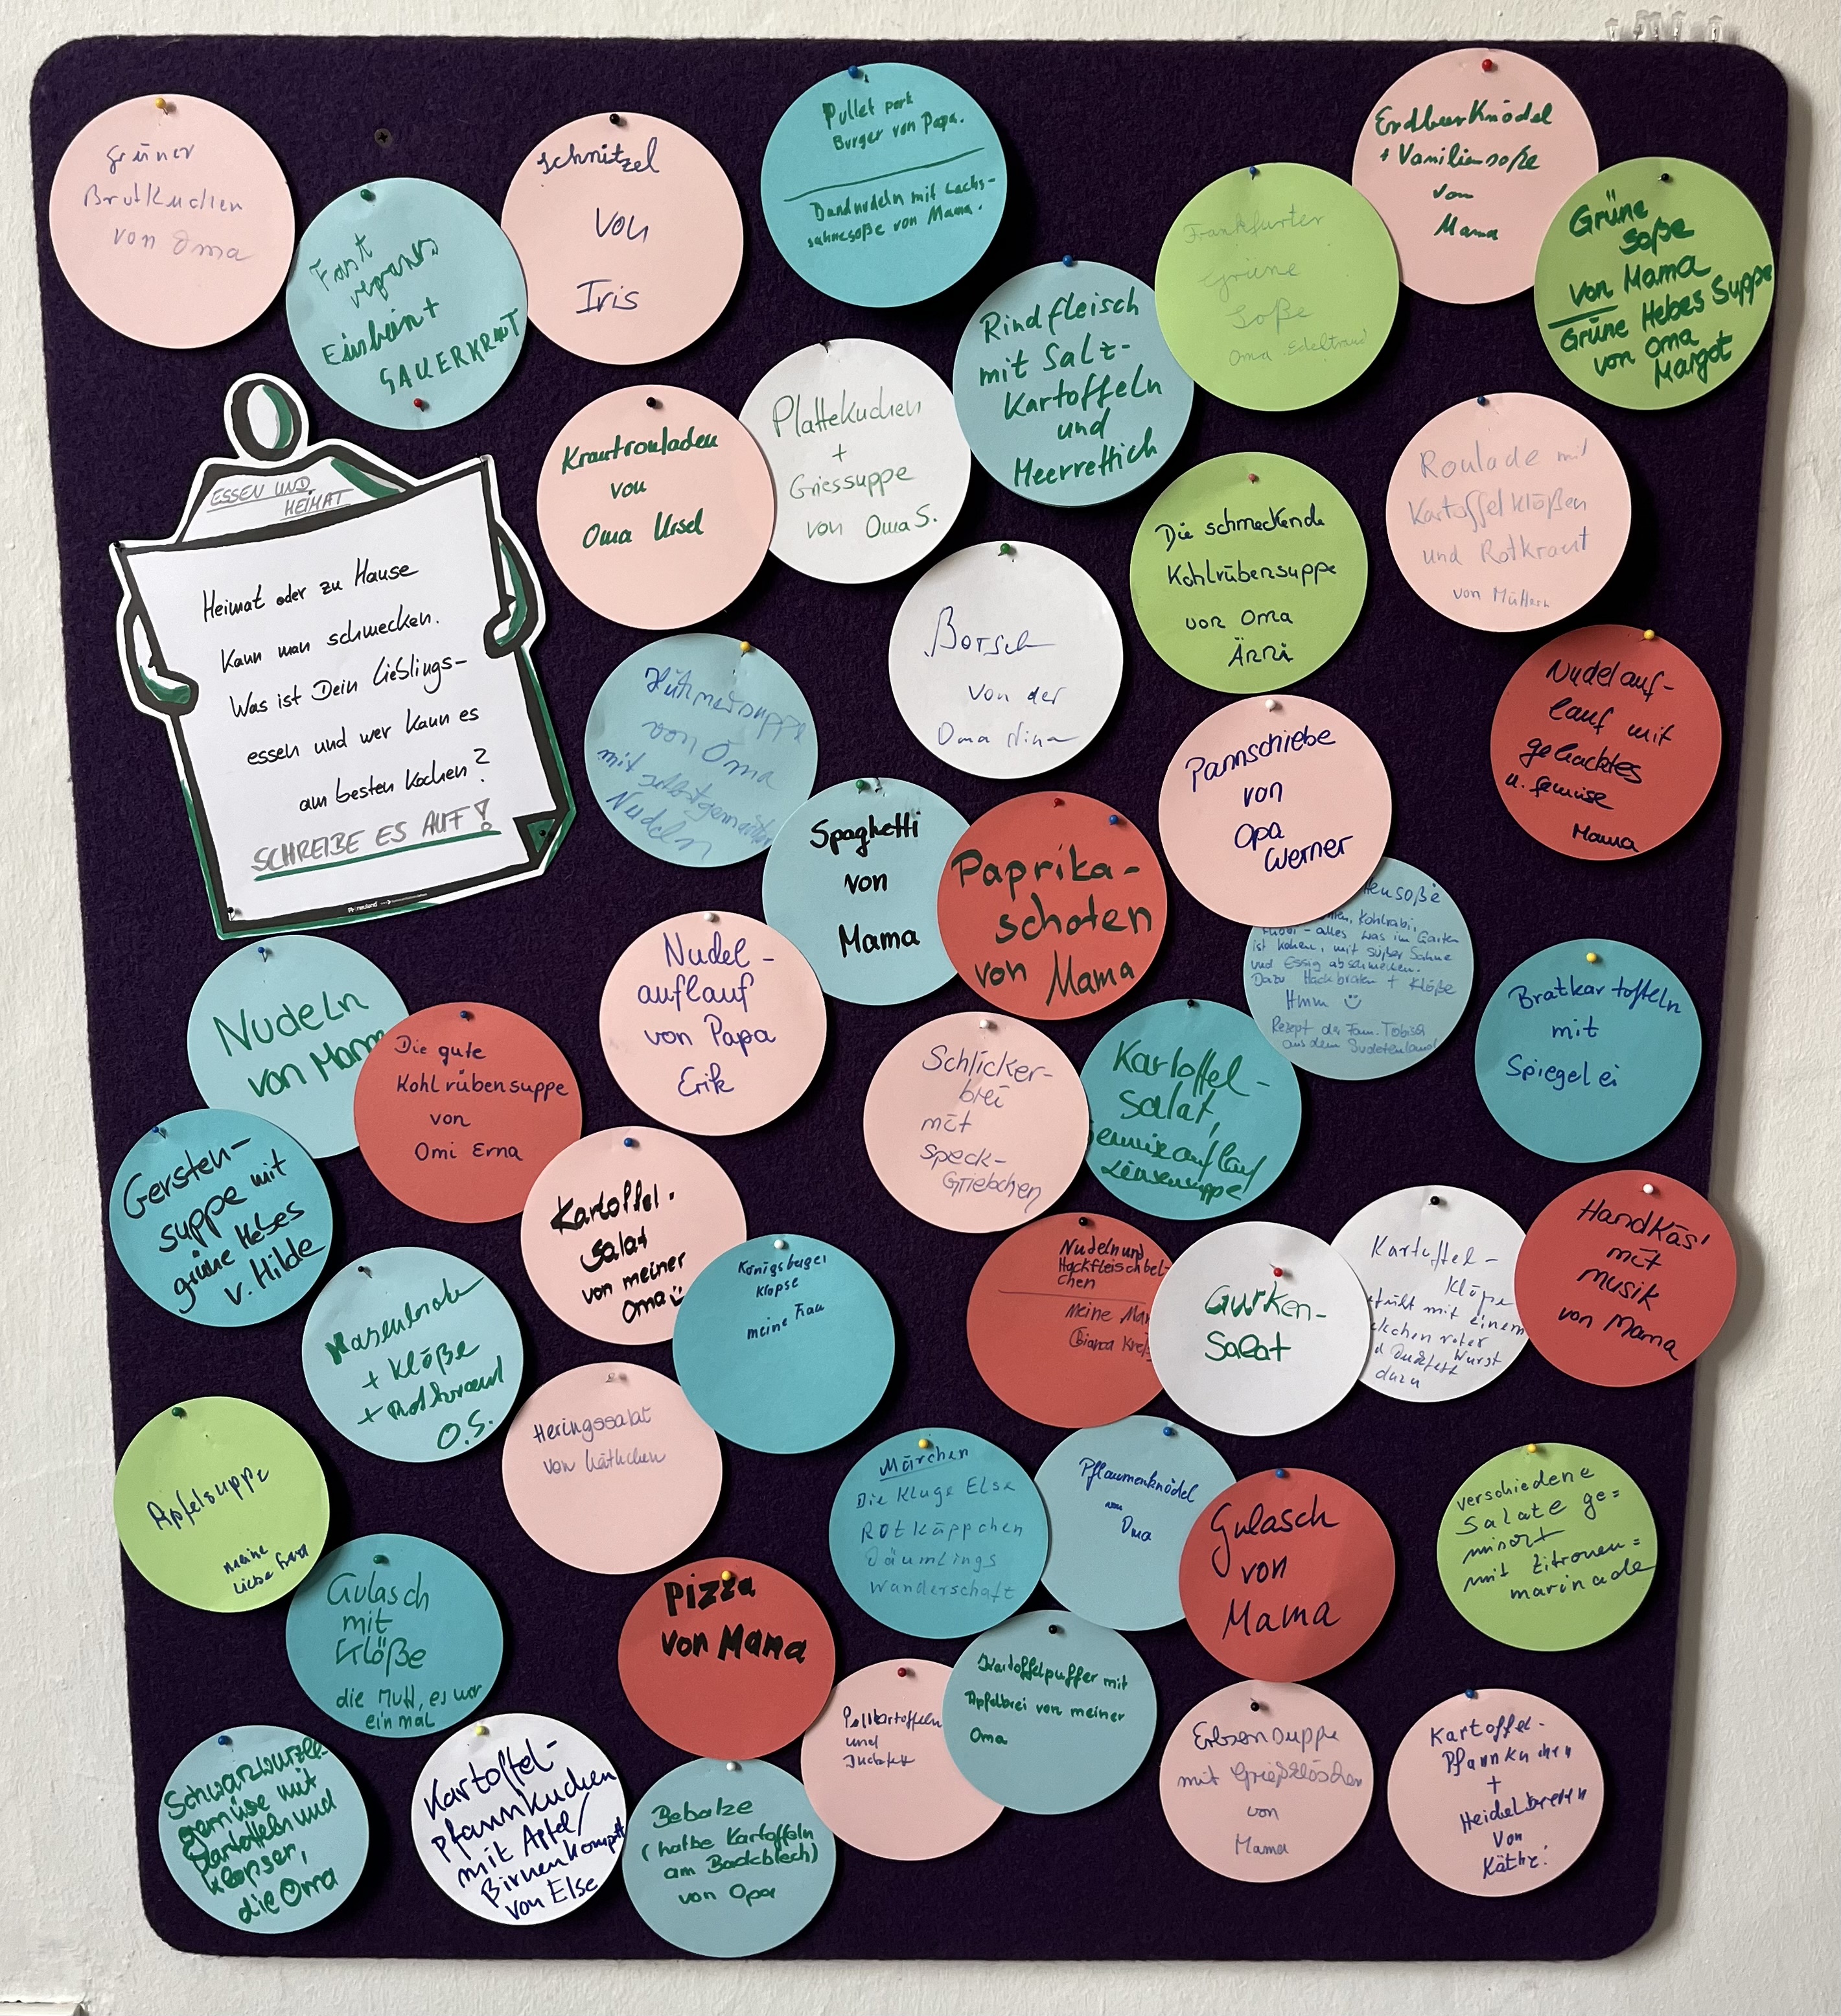 grüner
Brotkuchen
von Oma
Einbeint
SAUERKRAUT
schnitzel
von
Iris
Pullet pork
Burger von Papa.
Bandnudeln mit Lachs-
sahnesoße von Mama.
Rindfleisch
mit Salz-
Kartoffeln
und
Meerrettich
Frankfurter
Grüne
Soße
Oma Edeltraud
Erdbeerknödel
+ Vanillensoße
von
Mama
Grüne
Soße
von Mama
Grüne Hebes Suppe
von Oma
Margot
ESSEN UND
HEIMAT
Heimat oder zu Hause
kann man schmecken.
Was ist Dein Lieblings-
essen und wer kann es
am besten kochen?
SCHREIBE ES AUF!
neuland
Krautrouladen
von
Oma Ursel
Plattekuchen
+
Griessuppe
von Oma S.
Die schmeckende
Kohlrübensuppe
von Oma
Änni
Roulade mit
Kartoffelklößen
und Rotkraut
von Muttern
Borsch
von der
Oma Nina
Hühnersuppe
von Oma
mit selbstgemachten
Nudeln
Spaghetti
von
Mama
Paprika-
schoten
von Mama
Pannschiebe
von
Opa
Werner
Nudelauf-
lauf mit
gehacktes
u. gemüse
Mama
Kohlrabi,
alles was im Garten
ist kochen, mit süßer Sahne
und Essig abschmecken.
Dazu Hackbraten + Klöße
Hmm ☺
Rezept der Fam. Tobisch
aus dem Sudetenland
Nudeln
von Mama
Die gute
Kohlrübensuppe
von
Omi Erna
Nudel-
auflauf
von Papa
Erik
Schlicker-
brei
mit
Speck-
Griebchen
Kartoffel-
Salat,
Gemüseauflauf
Linsensuppe
Bratkartoffeln
mit
Spiegelei
Gersten-
suppe mit
grüne Hebes
v. Hilde
Kartoffel-
Salat
von meiner
Oma ☺
Königsberger
Klopse
meine Frau
Nudeln und
Hackfleischbel-
chen
Meine Mam
Bianca
Gurken-
Salat
Kartoffel-
Klöße
mit einem
roter
Wurst
Duckfett
dazu
Handkäs'
mit
Musik
von Mama
Hasenbrate
+ Klöße
+ Rotkraut
O.S.
Heringssalat
von Käthchen
Apfelsuppe
meine
liebe Frau
Märchen
Die Kluge Else
Rotkäppchen
Däumlings
Wanderschaft
Pflaumenknödel
von
Oma
Gulasch
von
Mama
verschiedene
Salate ge=
mischt
mit Zitronen=
marinade
Gulasch
mit
Klöße
die Mutt, es war
einmal
Pizza
von Mama
Pellkartoffeln
und
Duckfett
Kartoffelpuffer mit
Apfelbrei von meiner
Oma
Erbsensuppe
mit Grießklöschen
von
Mama
Kartoffel-
Pfannkuchen
+
Heidelbeeren
von
Käthe!
Schwarzwurzel-
gemüse mit
Kartoffeln und
Klopser,
die Oma
Kartoffel-
pfannkuchen
mit Apfel/
Birnenkompott
von Else
Bebalze
(halbe Kartoffeln
am Backblech)
von Opa